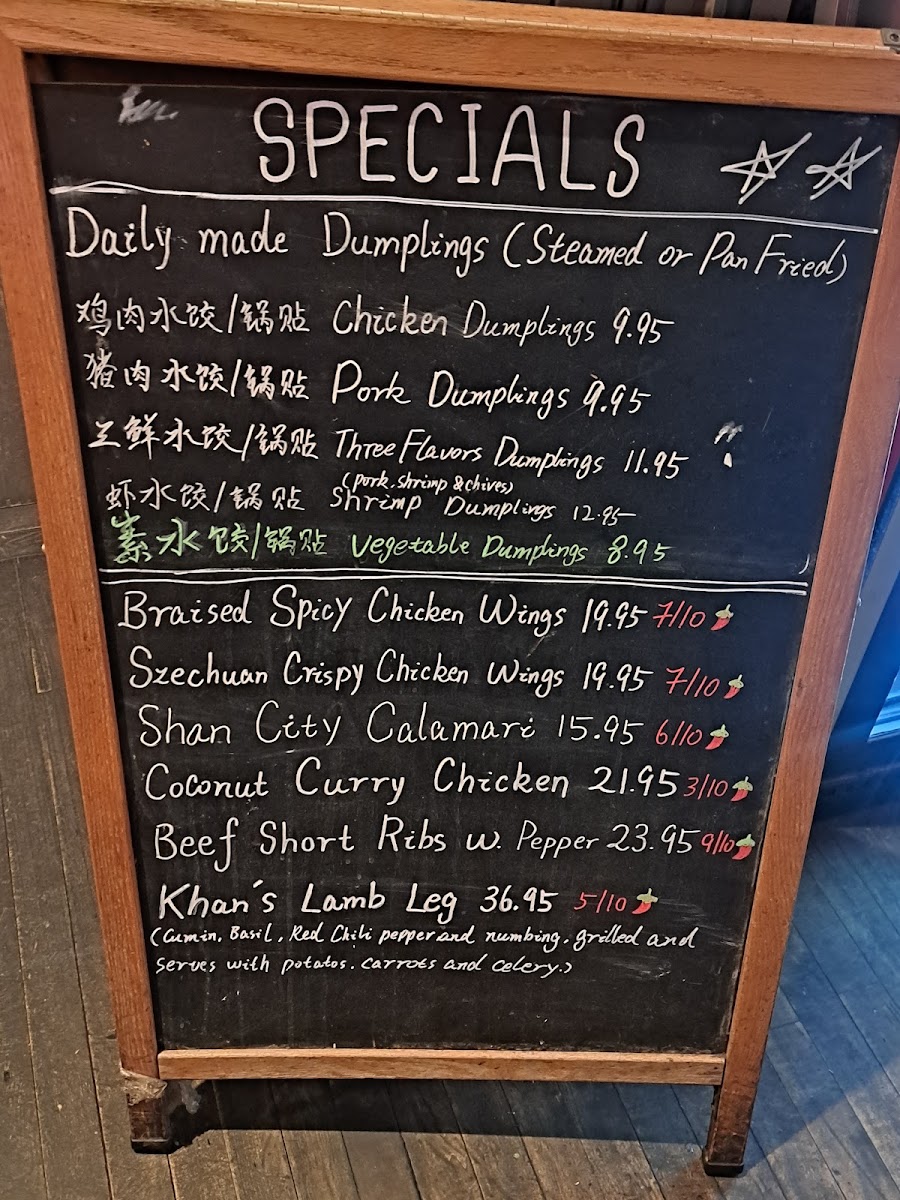 SPECIALS
Daily made Dumplings (Steamed or Pan Fried)
鸡肉水饺/锅贴 Chicken Dumplings 9.95
猪肉水饺/锅贴 Pork Dumplings 9.95
三鲜水饺/锅贴 Three Flavors Dumplings 11.95
(pork. shrimp & chives)
虾水饺/锅贴 Shrimp Dumplings 12.95
素水饺/锅贴 Vegetable Dumplings 8.95
Braised Spicy Chicken Wings 19.95 7/10
Szechuan Crispy Chicken Wings 19.95 7/10
Shan City Calamari 15.95 6/10
Coconut Curry Chicken 21.95 3/10
Beef Short Ribs w. Pepper 23.95 9/10
Khan's Lamb Leg 36.95 5/10
(Cumin, Basil, Red Chili pepper and numbing. grilled and
serves with potatos. carrots and celery.)